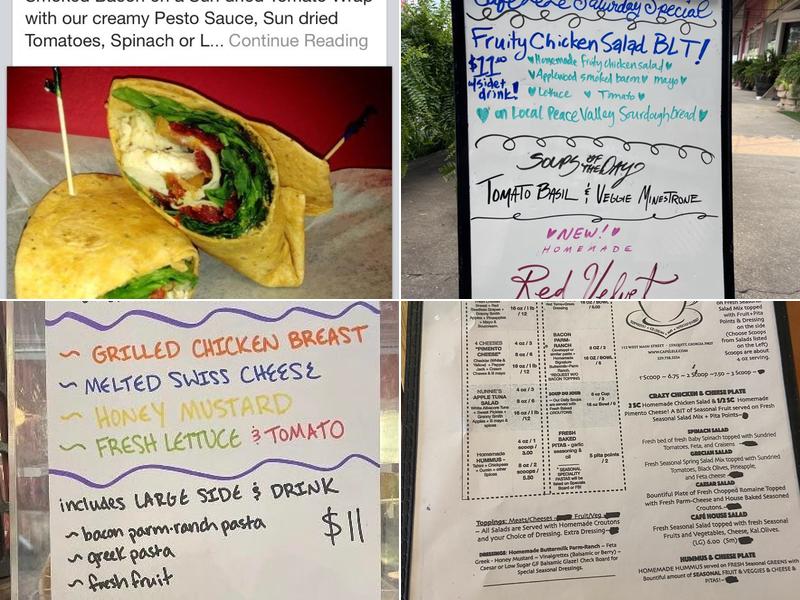 Smoked Bacon on a Sun dried Tomato Wrap
with our creamy Pesto Sauce, Sun dried
Tomatoes, Spinach or L... Continue Reading
Saturday Special
Fruity Chicken Salad BLT!
$11.00
w/side +
drink!
Homemade fruity chicken salad
Applewood smoked bacon mayo
Lettuce Tomato
on Local Peace Valley Sourdough bread
SOUPS OF THE DAY
TOMATO BASIL & VEGGIE MINESTRONE
NEW!
HOMEMADE
Red Velvet
~ GRILLED CHICKEN BREAST
~ MELTED SWISS CHEESE
~ HONEY MUSTARD
~ FRESH LETTUCE & TOMATO
includes LARGE SIDE & DRINK
~ bacon parm-ranch pasta
~ greek pasta
~ fresh fruit
$11
4 CHEESES
"PIMENTO
CHEESE"
4 oz / 3
8 oz / 6
16 oz / 1 lb
/ 12
NUNNIE'S
APPLE TUNA
SALAD
4 oz / 3
8 oz / 6
16 oz / 1 lb
/ 12
Homemade
HUMMUS -
4 oz / 1
scoop /
3.00
8 oz / 2
scoops /
5.50
BACON
PARM-
RANCH
8 OZ / 3
16 OZ/BOWL
/ 6
SOUP DU JOUR
8 oz Cup
/ 3
16 oz Bowl / 6
FRESH
BAKED
PITAS - garlic
seasoning &
oil
5 pita points
/ 2
* SEASONAL
SPECIALTY
PASTAS will be
listed on Specials
Board or FB!
Toppings: Meats/Cheeses Fruit/Veg
– All Salads are Served with Homemade Croutons
and your Choice of Dressing. Extra Dressing-
DRESSINGS: Homemade Buttermilk Parm-Ranch – Feta
Greek - Honey Mustard – Vinaigrettes (Balsamic or Berry) –
Caesar or Low Sugar GF Balsamic Glaze! Check Board for
Special Seasonal Dressings.
on Fresh
Seasonal
Salad Mix
topped with
Fruit + Pita
Points & Dressing
on the side
(Choose
Scoops from
Salads listed
on the Left)
Scoops are about
4 oz serving.
1 Scoop – 6.75 – 2 Scoop – 7.50 – 3 Scoop –
CRAZY CHICKEN & CHEESE PLATE
2 SC Homemade Chicken Salad & 1/2 SC Homemade
Pimento Cheese! A BIT of Seasonal Fruit served on Fresh
Seasonal Salad Mix + Pita-
SPINACH SALAD
Fresh bed of fresh Baby Spinach topped with Sundried
Tomatoes, Feta, and Craisens
GRECIAN SALAD
Fresh Seasonal Spring Salad Mix topped with Seasonal
Tomatoes, Black Olives, Pineapple,
and Feta cheese
CAESAR SALAD
Bountiful Plate of Fresh Chopped Romaine Topped
with Fresh Parm-Cheese and House Baked Seasoned
Croutons.
CAFÉ HOUSE SALAD
Fresh Seasonal Salad topped with fresh Seasonal
Fruits and Vegetables, Cheese, Kal.Olives.
(LG) 6.00 (Sm)
HUMMUS & CHEESE PLATE
HOMEMADE HUMMUS served on FRESH Seasonal GREENS with
Bountiful amount of SEASONAL FRUIT & VEGGIES & CHEESE &
PITAS! –